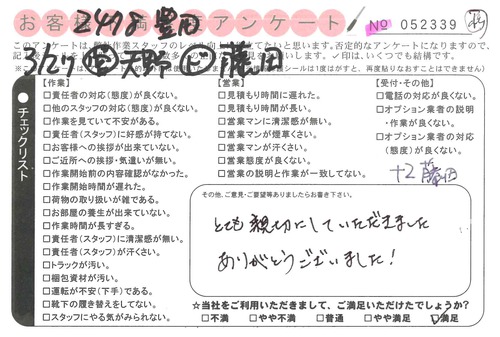 お客様満足度アンケート
No 052339
2478 豊田
3/27 天野 藤田
記
※こ
【作業】
□責任者の対応(態度)が良くない。
□他のスタッフの対応(態度)が良くない。
□作業を見ていて不安がある。
□責任者(スタッフ)に好感が持てない。
□お客様への挨拶が出来ていない。
□ご近所への挨拶・気遣いが無い。
□作業開始前の内容確認がなかった。
□作業開始時間が遅れた。
□荷物の取り扱いが雑である。
□お部屋の養生が出来ていない。
□作業時間が長すぎる。
□責任者(スタッフ)に清潔感が無い。
□責任者(スタッフ)が汗くさい。
□トラックが汚い。
□梱包資材が汚い。
□運転が不安(下手)である。
□靴下の履き替えをしてない。
□スタッフにやる気がみられない。
【営業】
□見積もり時間に遅れた。
□見積もり時間が長い。
□営業マンに清潔感が無い。
□営業マンが煙草くさい。
□営業マンが汗くさい。
□営業態度が良くない。
□営業の説明と作業が一致してない。
【受付・その他】
□電話の対応が良くない。
□オプション業者の説明
・作業が良くない。
□オプション業者の対応
(態度)が良くない。
十2 藤田
●チェックリスト
その他、ご意見・ご要望等ありましたらお書き下さい。
とても親切にしていただきました
ありがとうございました!
☆当社をご利用いただきまして、ご満足いただけたでしょうか?
□不満 □やや不満 □普通 □やや満足 □満足